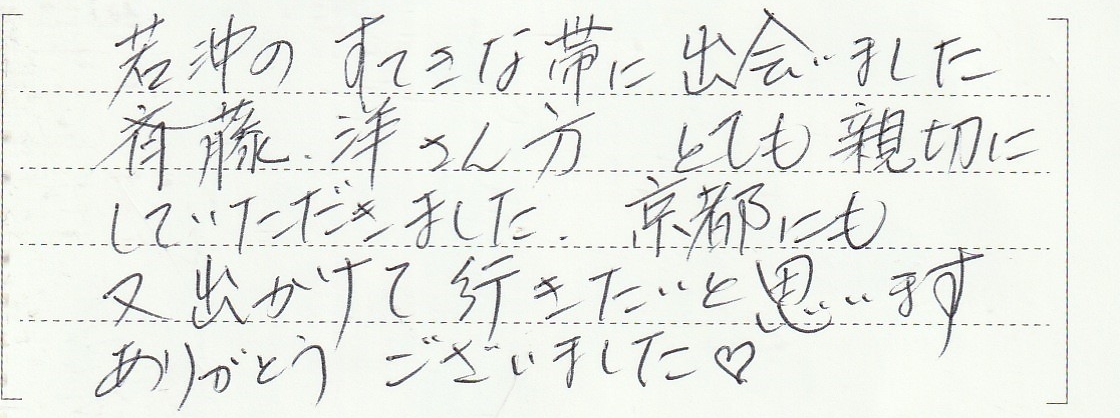 若沖の すてきな帯に出会いました
斉藤、洋さん方 とても親切に
していただきました。京都にも
又出かけて行きたいと思います
ありがとう ございました♡